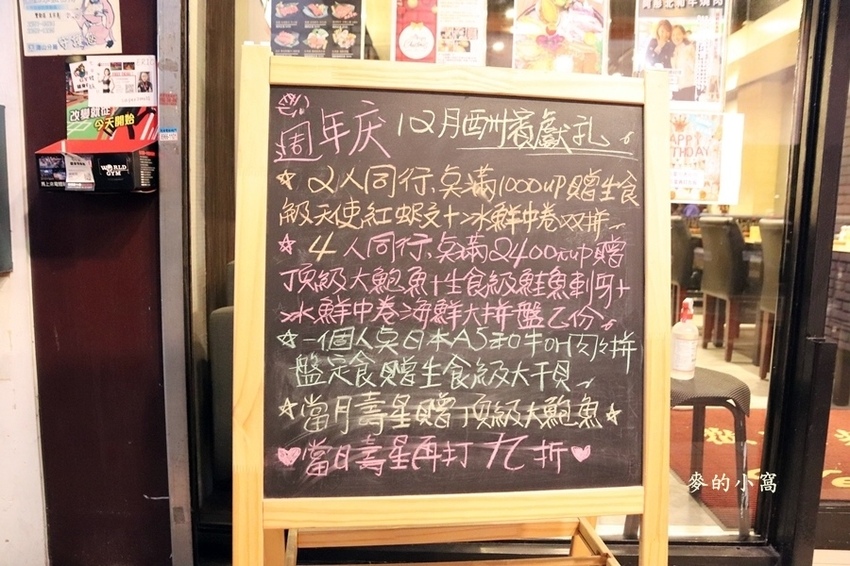 改變就從
今天開始
WORLD
GYM
週年庆 12月酬賓獻礼。
☆2人同行、点滿1000up贈生食
級天使紅蝦3支+冰鮮中卷双拼。
☆4人同行、点滿2400元up贈
頂級大鮑魚+生食級鮭魚刺身+
冰鮮中卷海鮮大拼盤乙份。
☆一個人点日本A5和牛
盤定食贈生食級大干貝。
☆當月壽星贈頂級大鮑魚☆
♥當月壽星再打九折♥
BIRTHDAY
麥的小窩